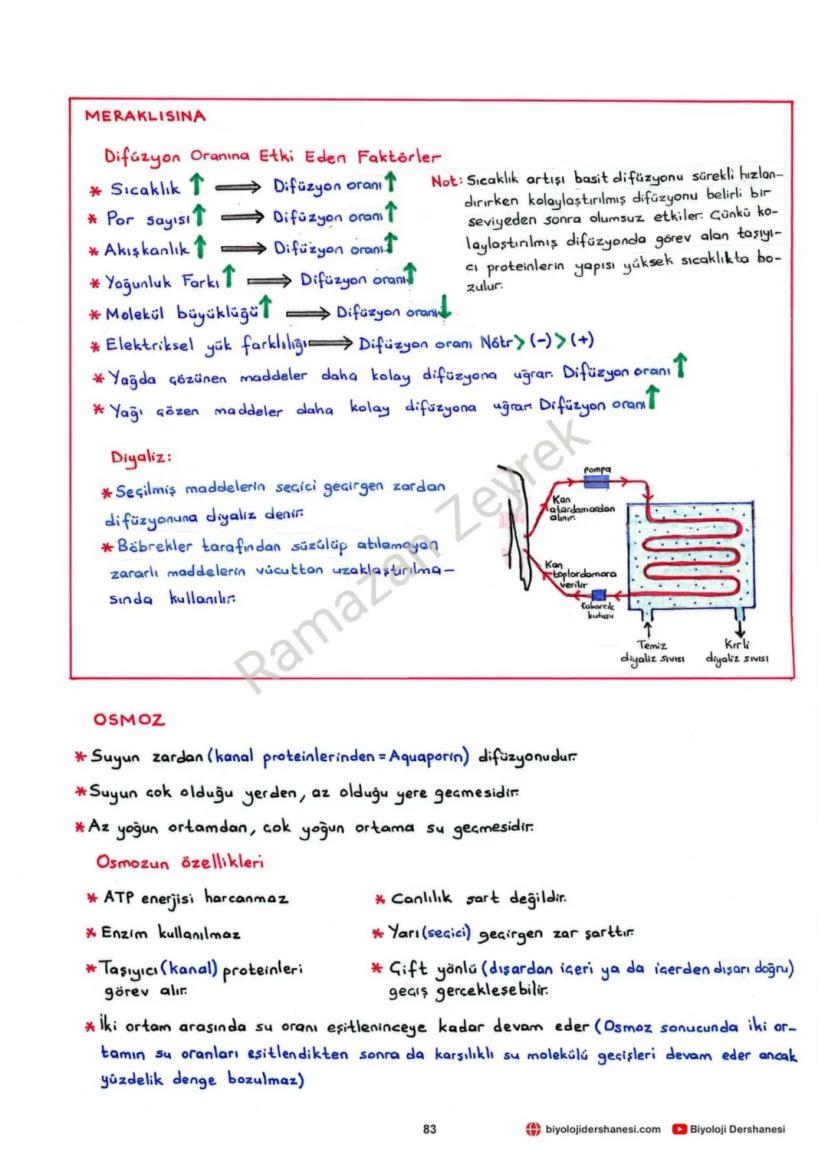 MERAKLISINA
Difüzyon Oranına Etki Eden Faktörler
* Sıcaklık ↑ ⟹ Difüzyon oranı ↑
* Por sayısı ↑ ⟹ Difüzyon oranı ↑
* Akışkanlık ↑ ⟹ Difüzyon oranı ↑
* Yoğunluk Farkı ↑ ⟹ Difüzyon oranı ↑
* Molekül büyüklüğü ↑ ⟹ Difüzyon oranı ↓
* Elektriksel yük farklılığı ⟹ Difüzyon oranı Nötr > (-) > (+)
* Yağda çözünen maddeler daha kolay difüzyona uğrar. Difüzyon oranı ↑
* Yağı çözen maddeler daha kolay difüzyona uğrar. Difüzyon oranı ↑
Not: Sıcaklık artışı basit difüzyonu sürekli hızlan-
dırırken kolaylaştırılmış difüzyonu belirli bir
seviyeden sonra olumsuz etkiler. Çünkü ko-
laylaştırılmış difüzyonda görev alan taşıyı-
cı proteinlerin yapısı yüksek sıcaklıkta bo-
zulur.
Diyaliz:
* Seçilmiş maddelerin seçici geçirgen zardan
difüzyonuna diyaliz denir.
* Böbrekler tarafından süzülüp atılamayan
zararlı maddelerin vücuttan uzaklaştırılma-
sında kullanılır.
Pompa
Kan
atardamardan
alınır.
Kan
toplardamara
verilir
Kabarcık
kutusu
Temiz
diyaliz sıvısı
Kirli
diyaliz sıvısı
Ramazan Zeyrek
OSMOZ
* Suyun zardan (kanal proteinlerinden = Aquaporin) difüzyonudur.
* Suyun çok olduğu yerden, az olduğu yere geçmesidir.
* Az yoğun ortamdan, çok yoğun ortama su geçmesidir.
Osmozun özellikleri
* ATP enerjisi harcanmaz
* Enzim kullanılmaz
* Taşıyıcı (kanal) proteinleri
görev alır.
* Canlılık şart değildir.
* Yarı (seçici) geçirgen zar şarttır.
* Çift yönlü (dışardan içeri ya da içerden dışarı doğru)
geçiş gerçekleşebilir.
* İki ortam arasında su oranı eşitleninceye kadar devam eder (Osmoz sonucunda iki or-
tamın su oranları eşitlendikten sonra da karşılıklı su molekülü geçişleri devam eder ancak
yüzdelik denge bozulmaz)
83
biyolojidershanesi.com
Biyoloji Dershanesi